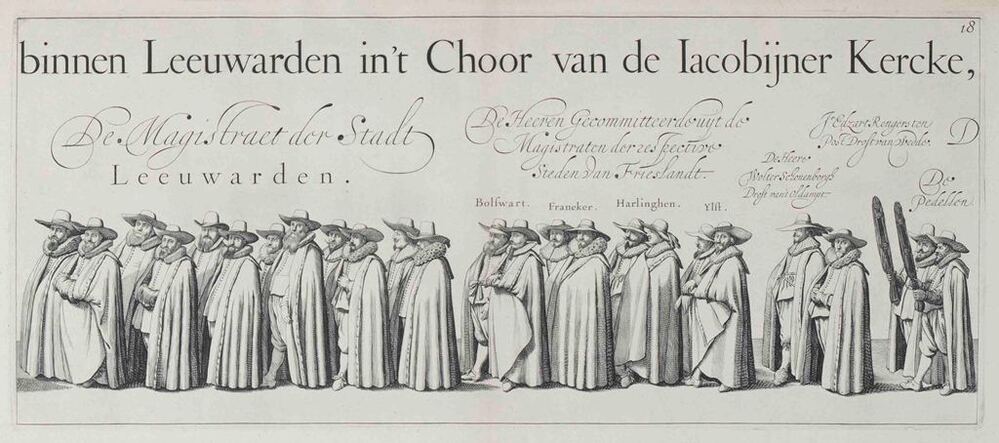 18
binnen Leeuwarden in't Choor van de Iacobijner Kercke,
De Magistraet der Stadt
Leeuwarden.
De Heeren Gecommitteerde uyt de
Magistraten der respective
Steden van Frieslandt.
Bolswart. Franeker. Harlinghen. Ylst.
De Heere
Wolter Schonenborgh
Drost van't Oldampt.
Jr Edzart Rengers ten
Post Drost van Wedde.
De
Pedellen
D